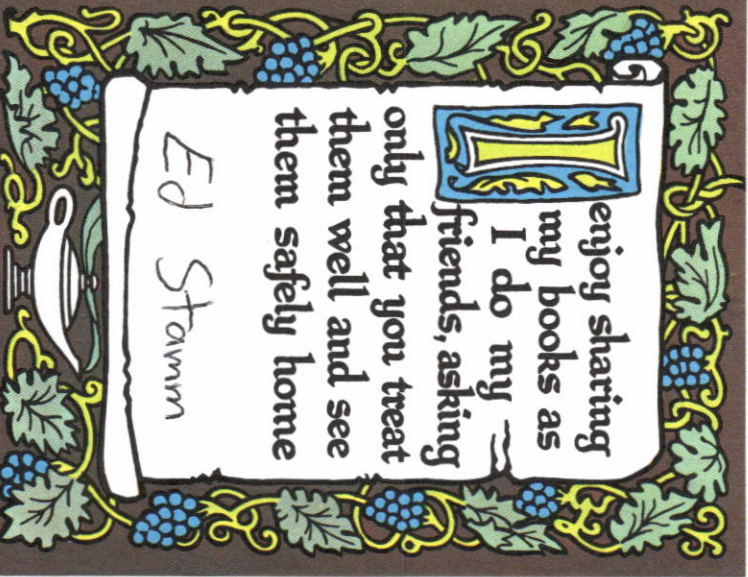 I enjoy sharing
my books as
I do my
friends, asking
only that you treat
them well and see
them safely home
Ed Stamm